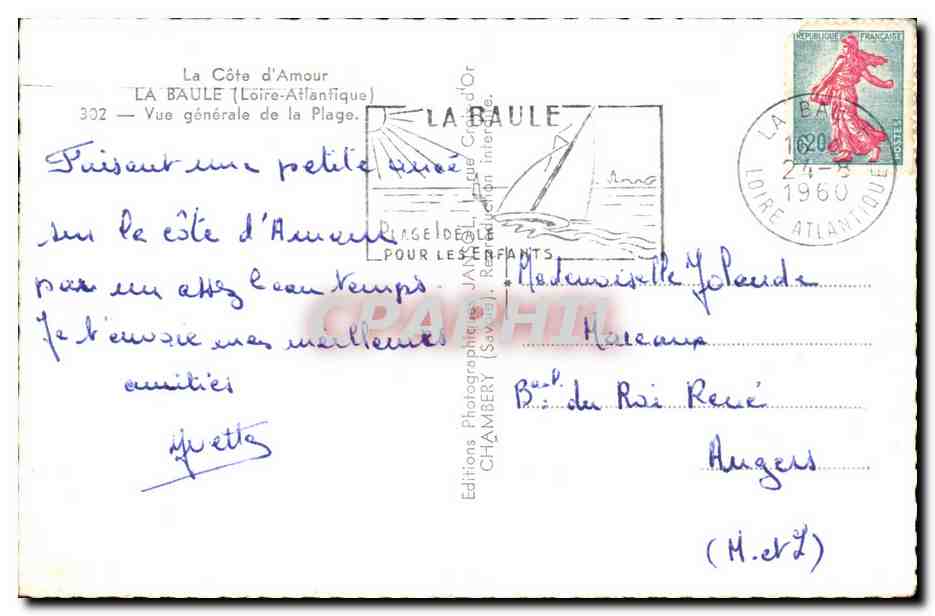 La Côte d'Amour
LA BAULE (Loire-Atlantique)
302 — Vue générale de la Plage.
Faisant une petite
sur la côte d'Amour
par un assez beau temps.
Je t'envoie mes meilleures
amitiés
Yvette
LA BAULE
PLAGE IDEALE
POUR LES ENFANTS
Editions Photographiques JANSOL, rue Croix d'Or
CHAMBERY (Savoie). Reproduction interdite.
REPUBLIQUE FRANÇAISE
0,20
POSTES
LA BAULE
16
24-8
1960
LOIRE ATLANTIQUE
Mademoiselle Yolande
Bault. du Roi René
Angers
(M. et L)
CPAPHIL